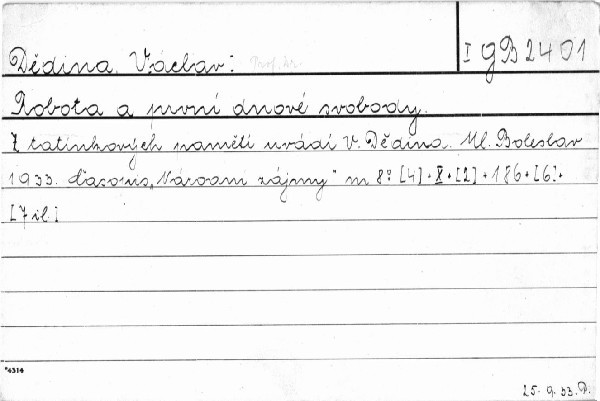 Dědina, Václav: Prof. Dr. I gB 2401
Robota a první dnové svobody.
Z tatínkových pamětí uvádí V. Dědina. Ml. Boleslav
1933. Časopis „Národní zájmy“ m 8° [4]+X+[2]+186+[6]+
[7 il.]
*4314
25. 9. 33. P.